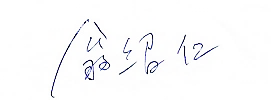 翁绍仁